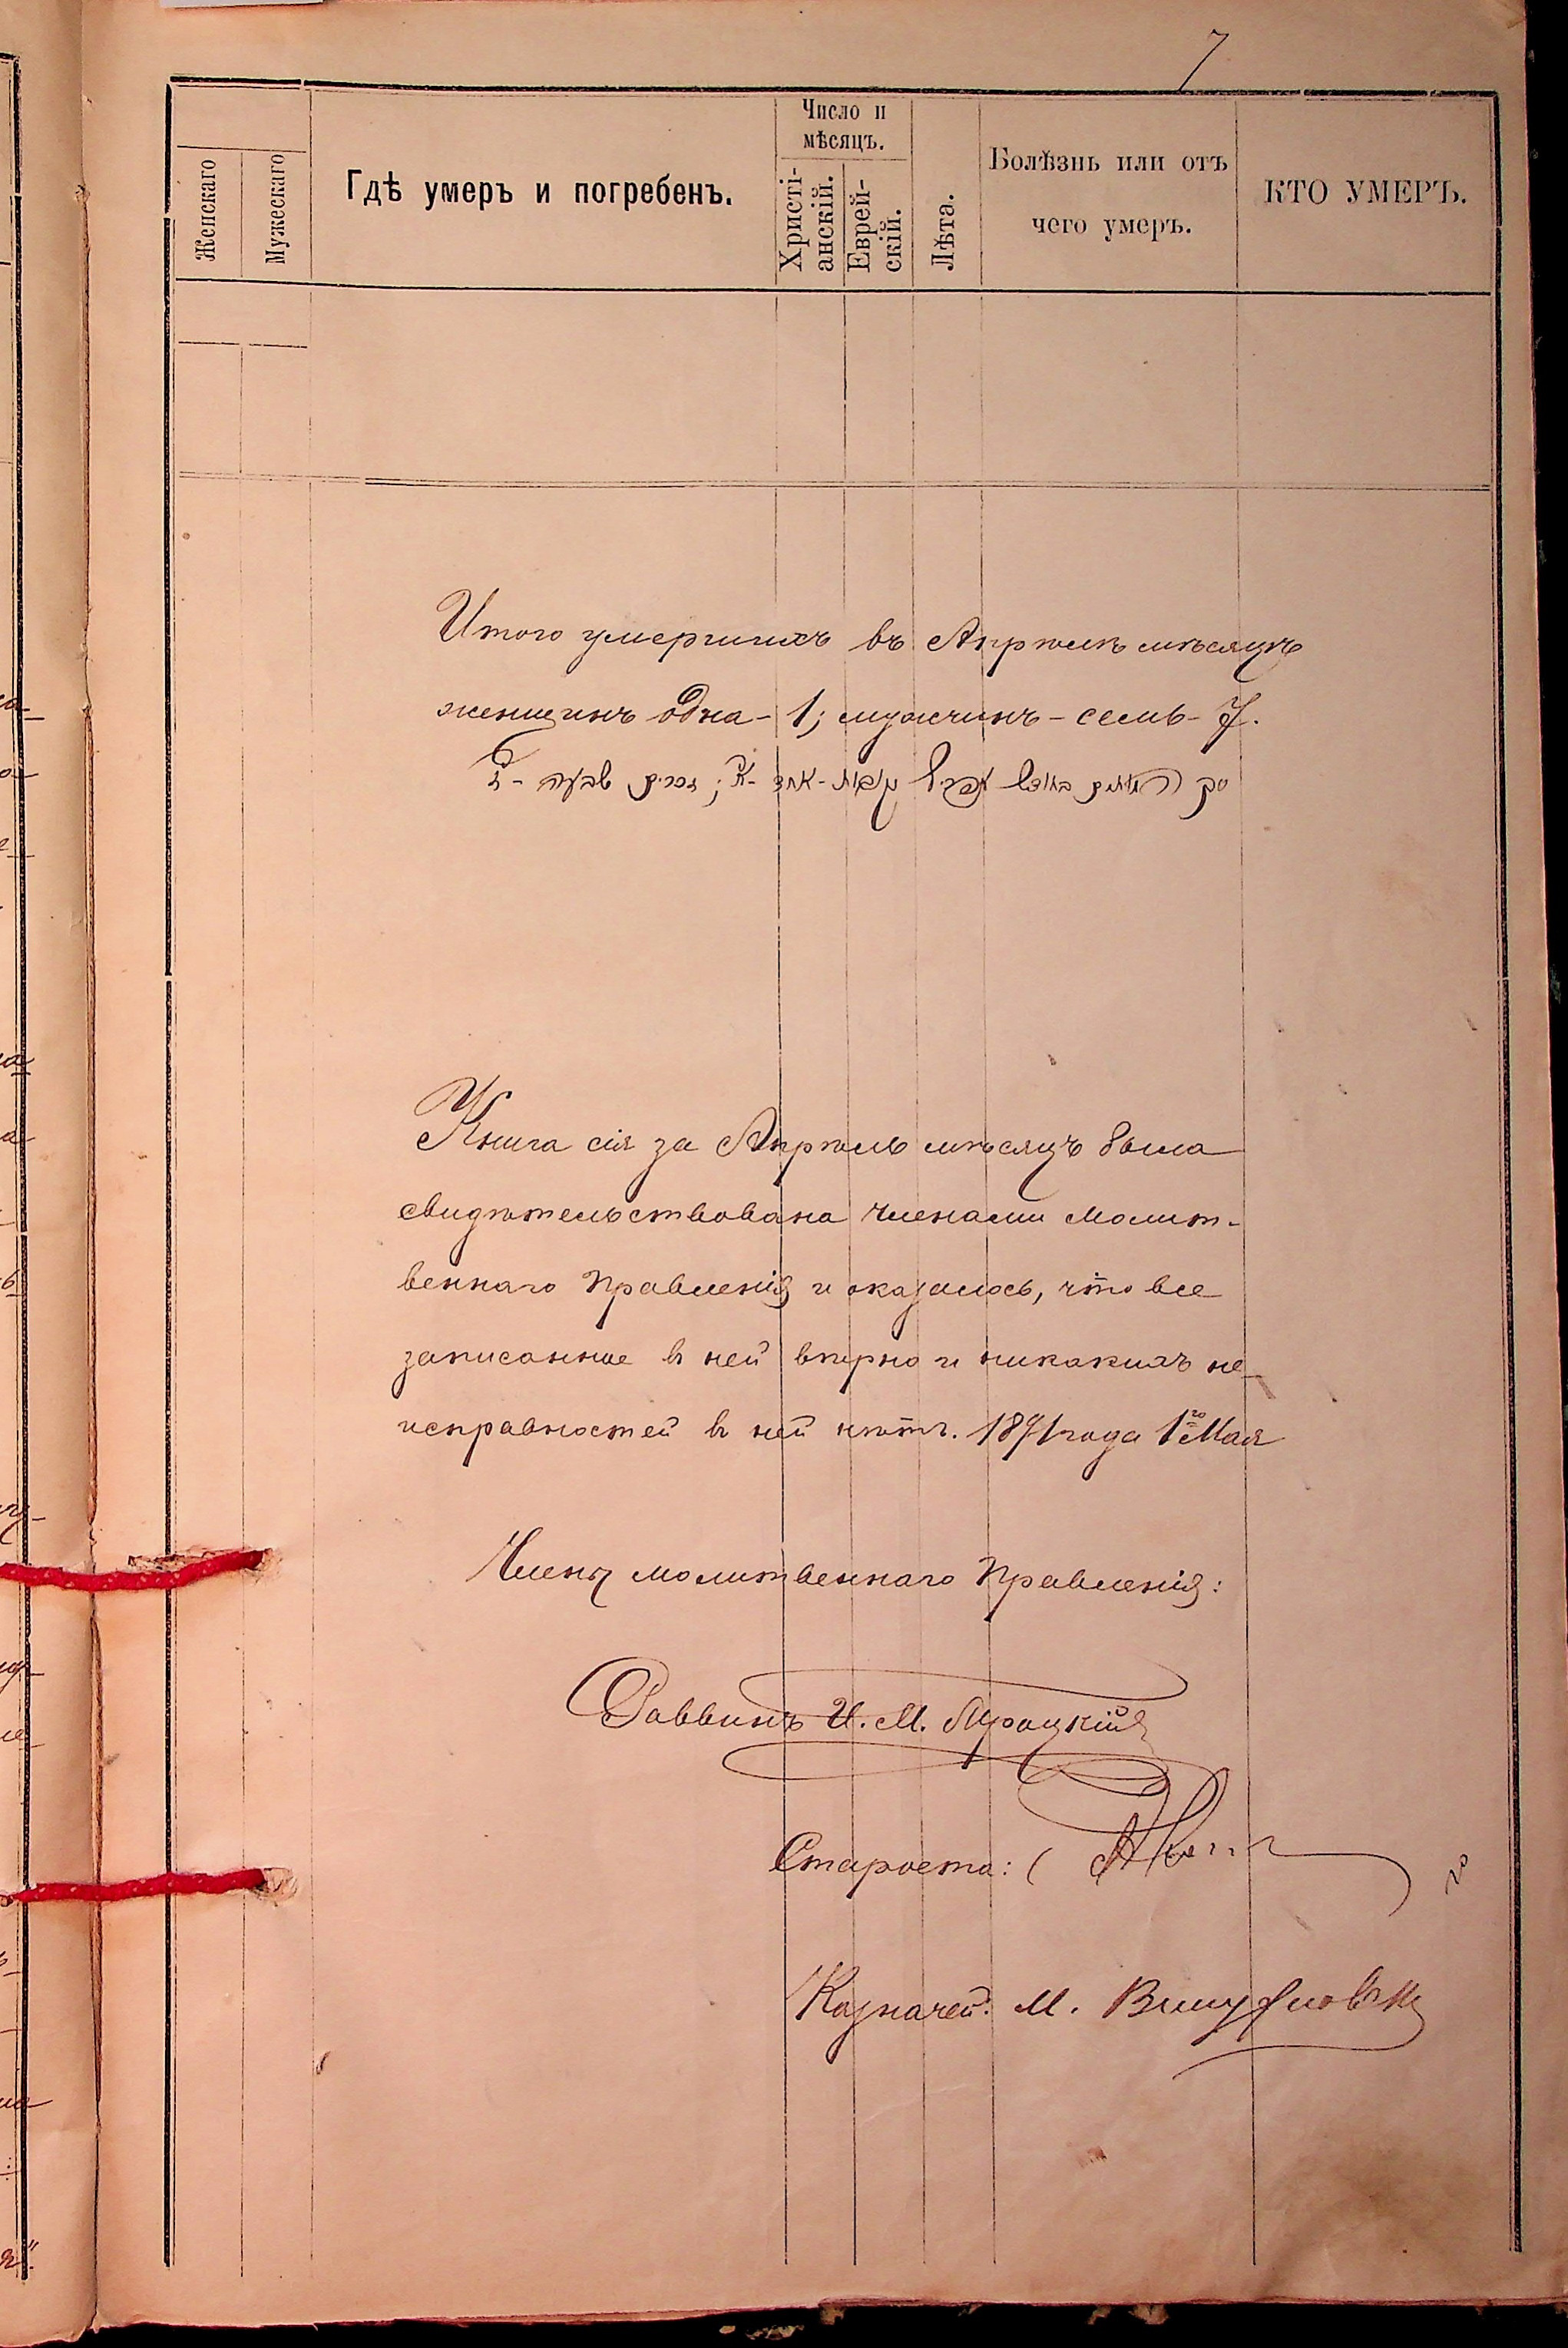 7
Женскаго
Мужескаго
Гдѣ умеръ и погребенъ.
Число и
мѣсяцъ.
Христі-
анскій.
Еврей-
скій.
Лѣта.
Болѣзнь или отъ
чего умеръ.
КТО УМЕРЪ.
Итого умершихъ въ Апрѣлѣ мѣсяцѣ
женщинъ одна - 1; мужчинъ - семь - 7.
Книга сія за Апрѣль мѣсяцъ была
свидѣтельствована членами Молит-
веннаго Правленія и оказалось, что все
записанное в ней вѣрно и никакихъ не-
исправностей в ней нѣтъ. 1891 года 1го Мая
Члены молитвеннаго Правленія:
Раввинъ И. М.
Староста:
Казначей: М.